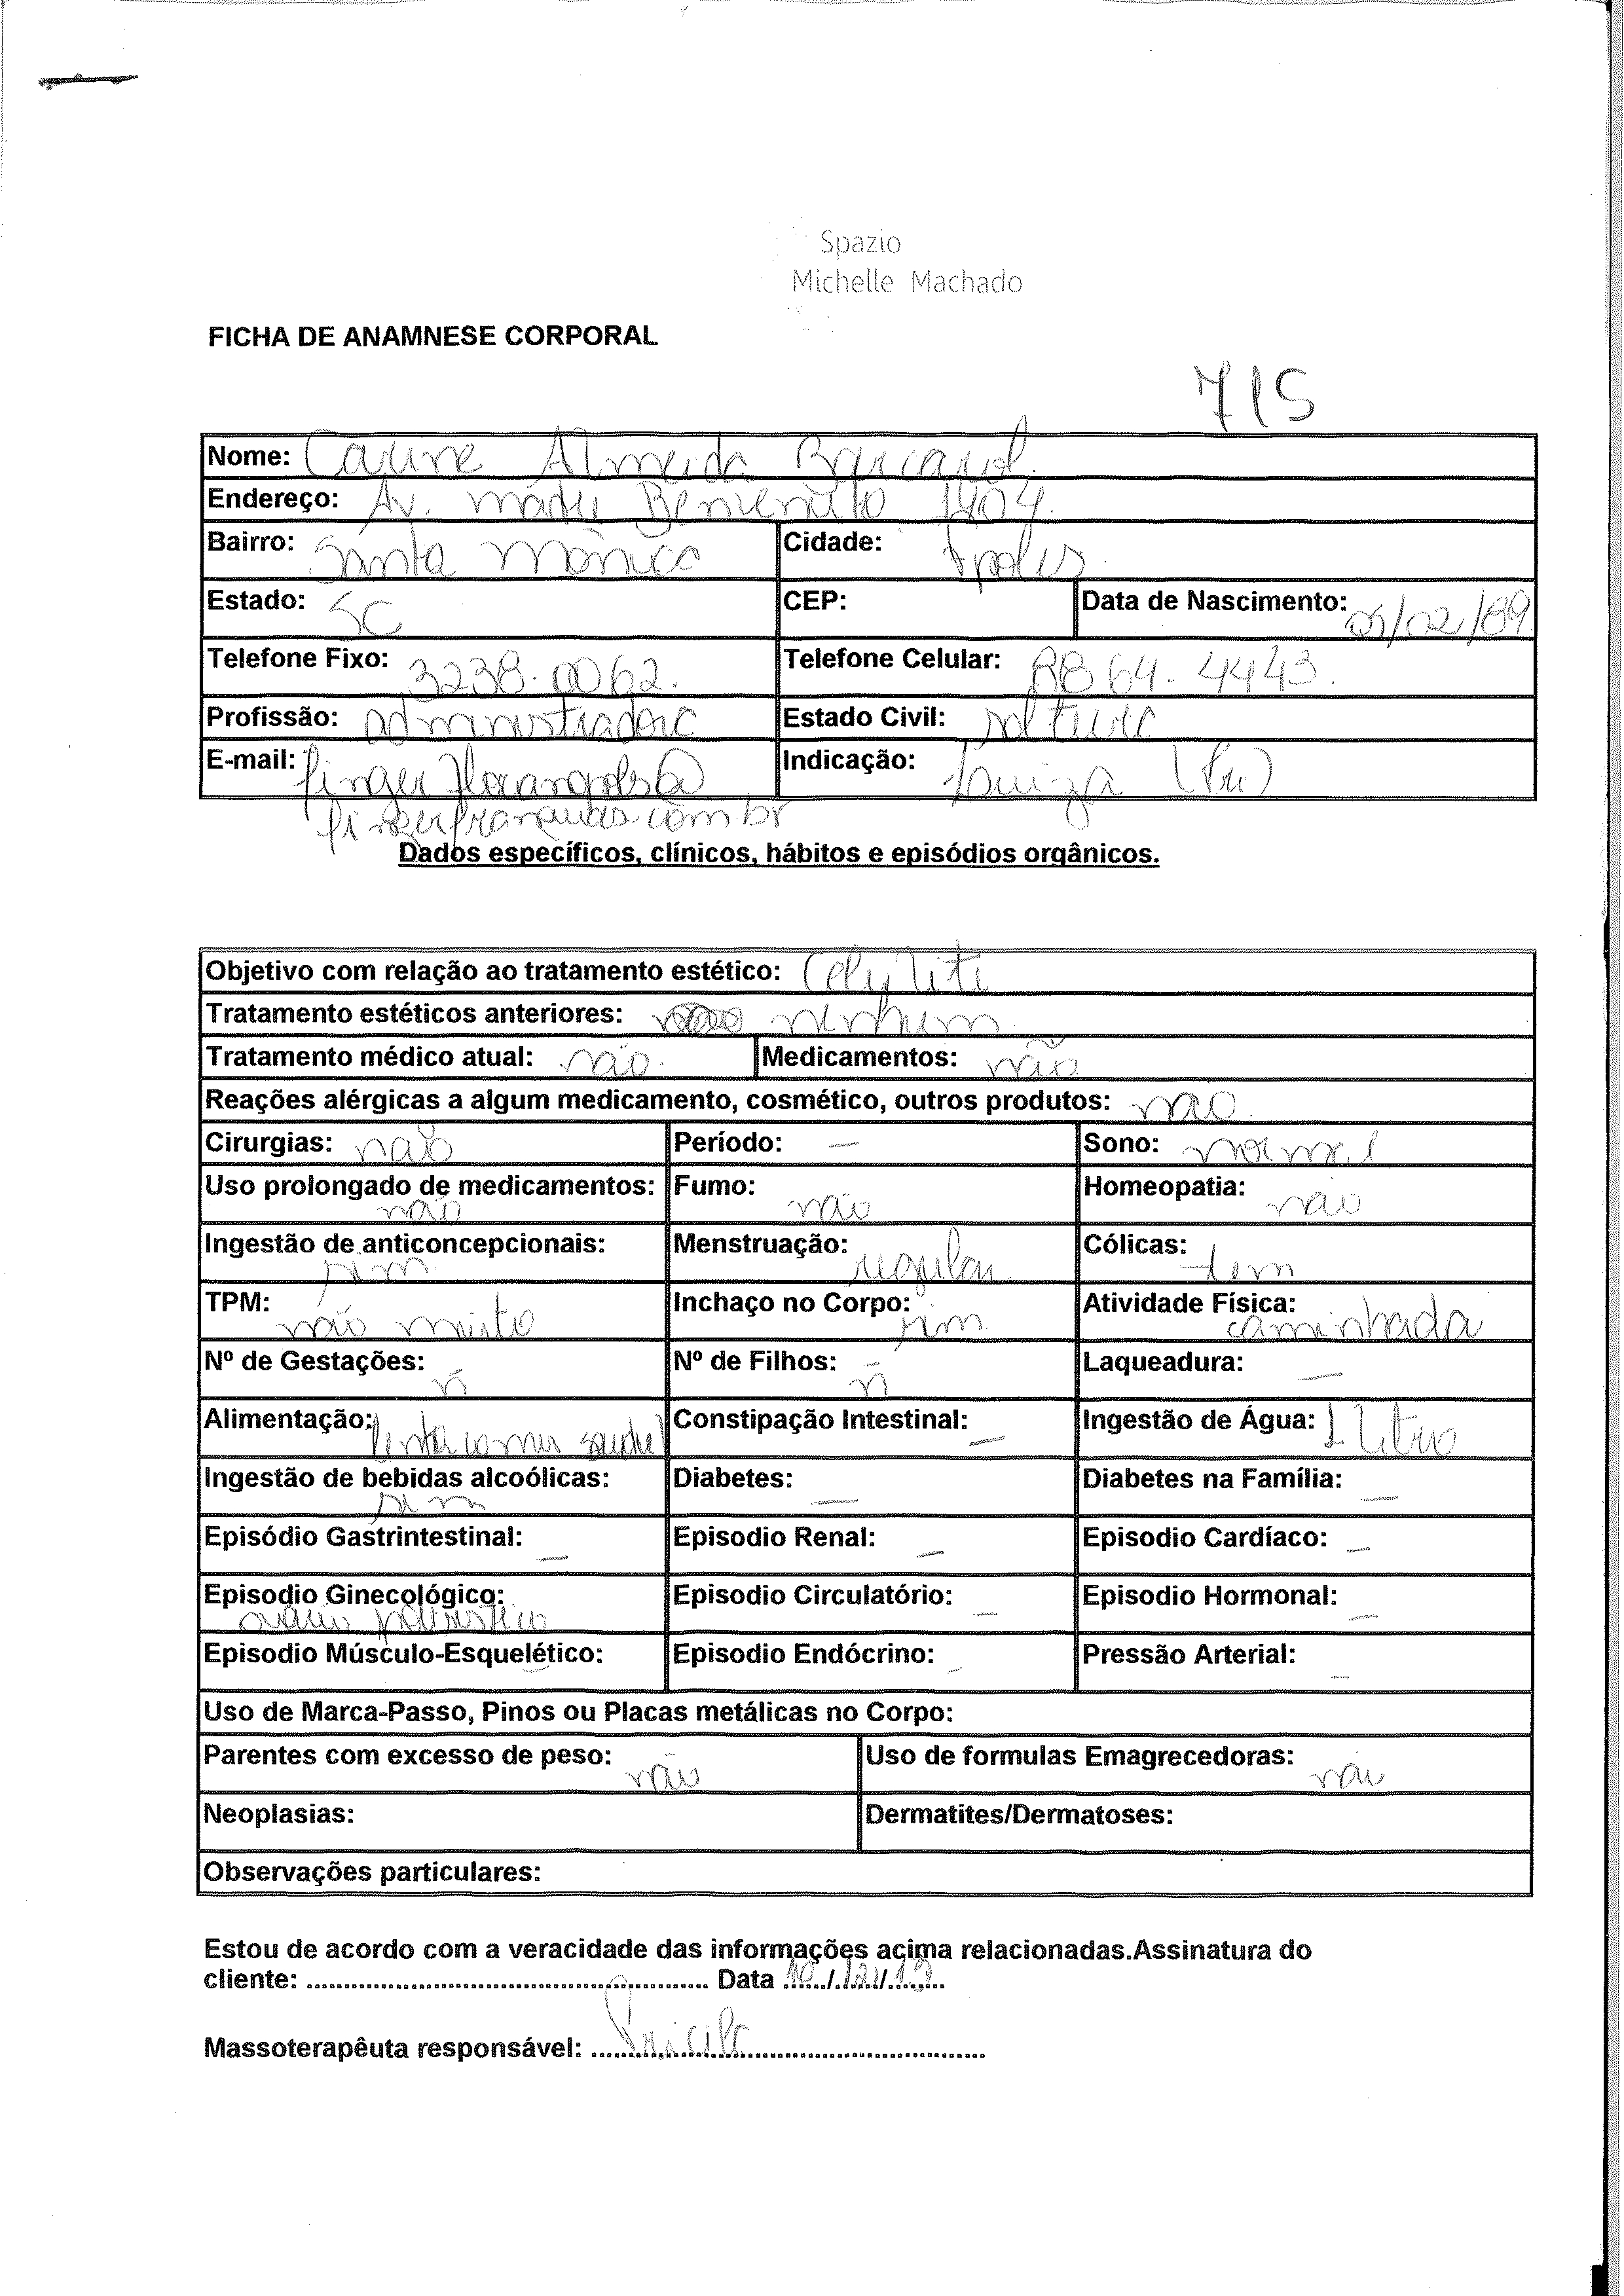 Spazio
Michelle Machado
FICHA DE ANAMNESE CORPORAL
715
Nome: Almeida
Endereço: Av. Madre Benvenuto 1404.
Bairro: Santa Mônica Cidade: Fpolis
Estado: SC CEP: Data de Nascimento: /02/89
Telefone Fixo: 3238.0062. Telefone Celular: 8864.4443.
Profissão: administradora Estado Civil: solteira
E-mail: fingerflorianopolis@ Indicação: (Pri)
fingerfranquias.com.br
Dados específicos, clínicos, hábitos e episódios orgânicos.
Objetivo com relação ao tratamento estético: Celuliti
Tratamento estéticos anteriores: nenhum
Tratamento médico atual: não. Medicamentos: não
Reações alérgicas a algum medicamento, cosmético, outros produtos: não.
Cirurgias: não Período: — Sono: normal
Uso prolongado de medicamentos: Fumo: não Homeopatia: não
não
Ingestão de anticoncepcionais: Menstruação: regular Cólicas: tem
sim
TPM: não muito Inchaço no Corpo: sim Atividade Física: caminhada
Nº de Gestações: ñ Nº de Filhos: ñ Laqueadura: —
Alimentação: tenta comer saudável Constipação Intestinal: — Ingestão de Água: 1 litro
Ingestão de bebidas alcoólicas: Diabetes: — Diabetes na Família: —
sim
Episódio Gastrintestinal: — Episodio Renal: — Episodio Cardíaco: —
Episodio Ginecológico: Episodio Circulatório: — Episodio Hormonal: —
ovário policístico
Episodio Músculo-Esquelético: — Episodio Endócrino: — Pressão Arterial: —
Uso de Marca-Passo, Pinos ou Placas metálicas no Corpo:
Parentes com excesso de peso: não Uso de formulas Emagrecedoras: não
Neoplasias: Dermatites/Dermatoses:
Observações particulares:
Estou de acordo com a veracidade das informações acima relacionadas.Assinatura do
cliente: ........ Data 10/12/12
Massoterapêuta responsável: Priscila